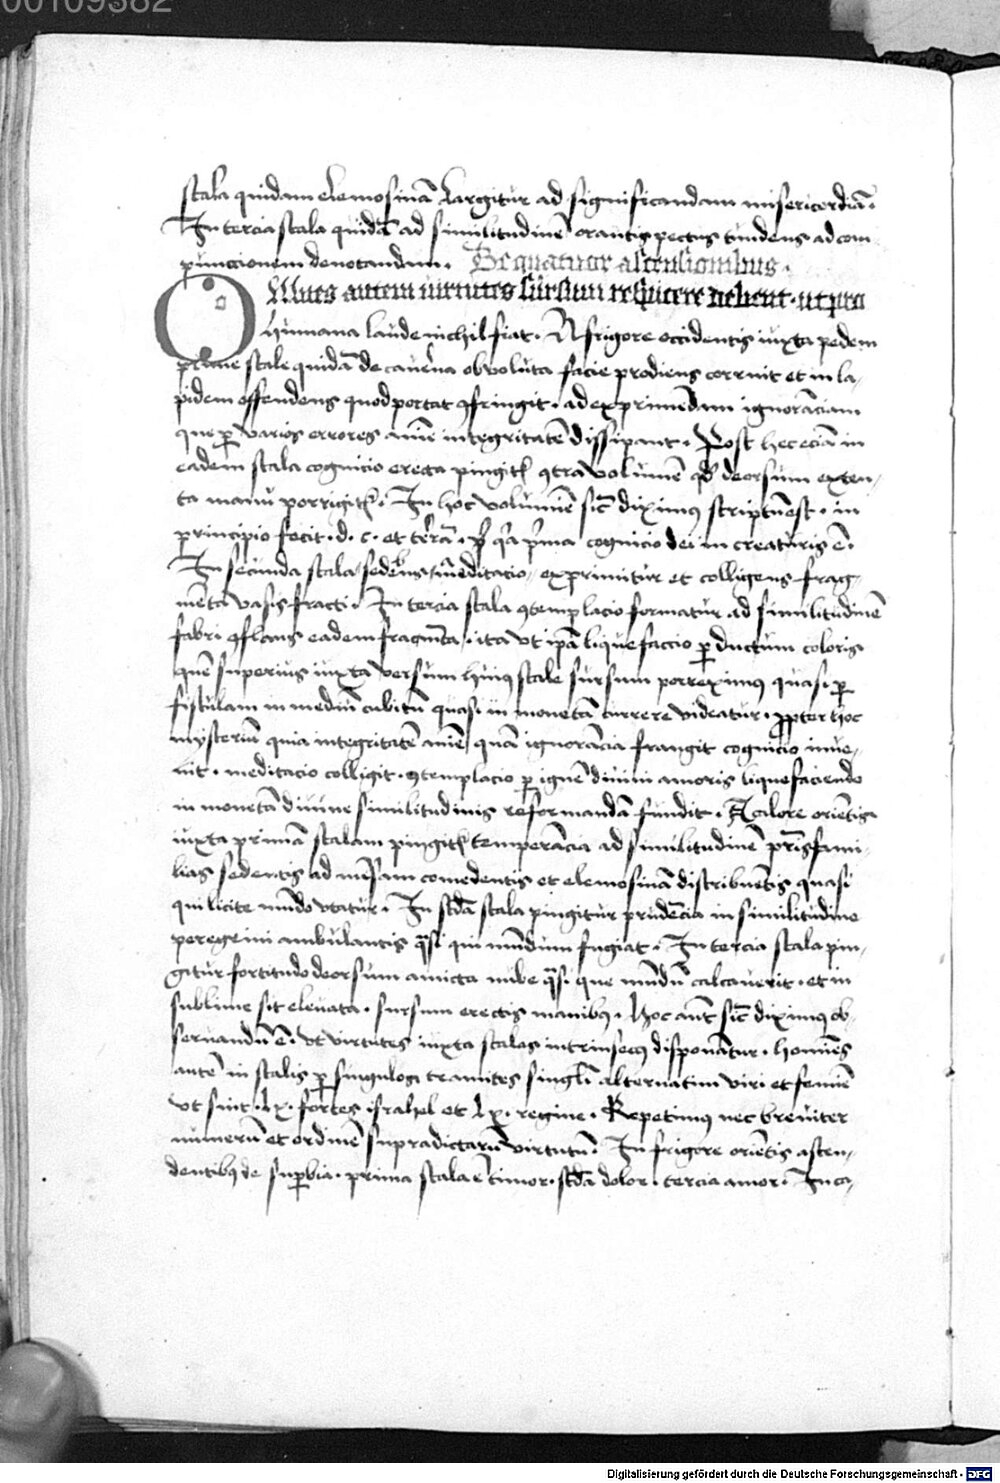 00109382
scala quidam elemosinā largitur ad significandam misericordiā.
In tercia scala quidā ad similitudinē orantis pectus tundens ad com
punccionem denotandam. De quatuor ascensionibus.
OMnes autem virtutes sursum respicere debent. ut pro
humana laude nichil fiat. A frigore occidentis iuxta pedem
prime scale quidā de caverna obvoluta facie prodiens corruit et in la,
pidem offendens quod portat ꝯfringit. ad exprimēdam ignorāciam
que ꝑ varios errores anīe integritatē dissipant. Post hec eciā in
eadem scala cognicio erecta pingitr̄ ꝯtra volumē qd̄ deorsum exten,
ta manu porrigitr̄. In hoc volumīe sic̄ diximꝯ scriptū est. in
principio fecit. d. c. et terrā. ꝓ qꝛ pͥma cognicio dei in creaturis ē.
In secunda scala sedens meditacio exprimitur et colligens frag,
mēta vasis fracti. In tercia scala ꝯtemplacio formatur ad similitudinē
fabri ꝯflans eadem fragmēta. ita vt ipā liquefaccio ꝑ ductum coloris
quē superius iuxta versum huiꝯ scale sursum porreximꝯ quasi ꝑ
fistulam in mediū cubitū quasi in monetā currere videatur. ꝓpter hoc
mysteriū quia integritatē anīe quā ignorācia frangit cognicio inve,
nit. meditacio colligit. ꝯtemplacio ꝑ ignē divini amoris liquefaciendo
in monetā divine similitudinis reformandā fundit. A calore oriētis
iuxta primā scalam pingitr̄ temperācia ad similitudinē pr̄isfami,
lias sedentis ad mēsam comedentis et elemosinā distribuētis quasi
qui licite mūdo vtatur. In sc̄da scala pingitur prudēcia in similitudine
peregrini ambulantis qͣsi qui mundum fugiat. In tercia scala pin,
gitur fortitudo deorsum amicta nube qͣsi que mūdū calcaverit. et in
sublime sit elevata. sursum erectis manibꝯ. Hoc aūt sic̄ diximꝯ ob,
servandū ē. vt virtutes iuxta scalas intrinsecꝯ disponātur. homīes
autē in scalis ꝑ singulos tramites singl̄i alternatim viri et femīe
vt sint. lx. fortes israhel et lx. regine. Repetimꝯ nec breviter
numerū et ordinē supradictarū virtutū. In frigore oriētis ascen,
dentibꝯ de suꝑbia. prima scala ē timor. sc̄da dolor. tercia amor. In ca,
Digitalisierung gefördert durch die Deutsche Forschungsgemeinschaft - DFG